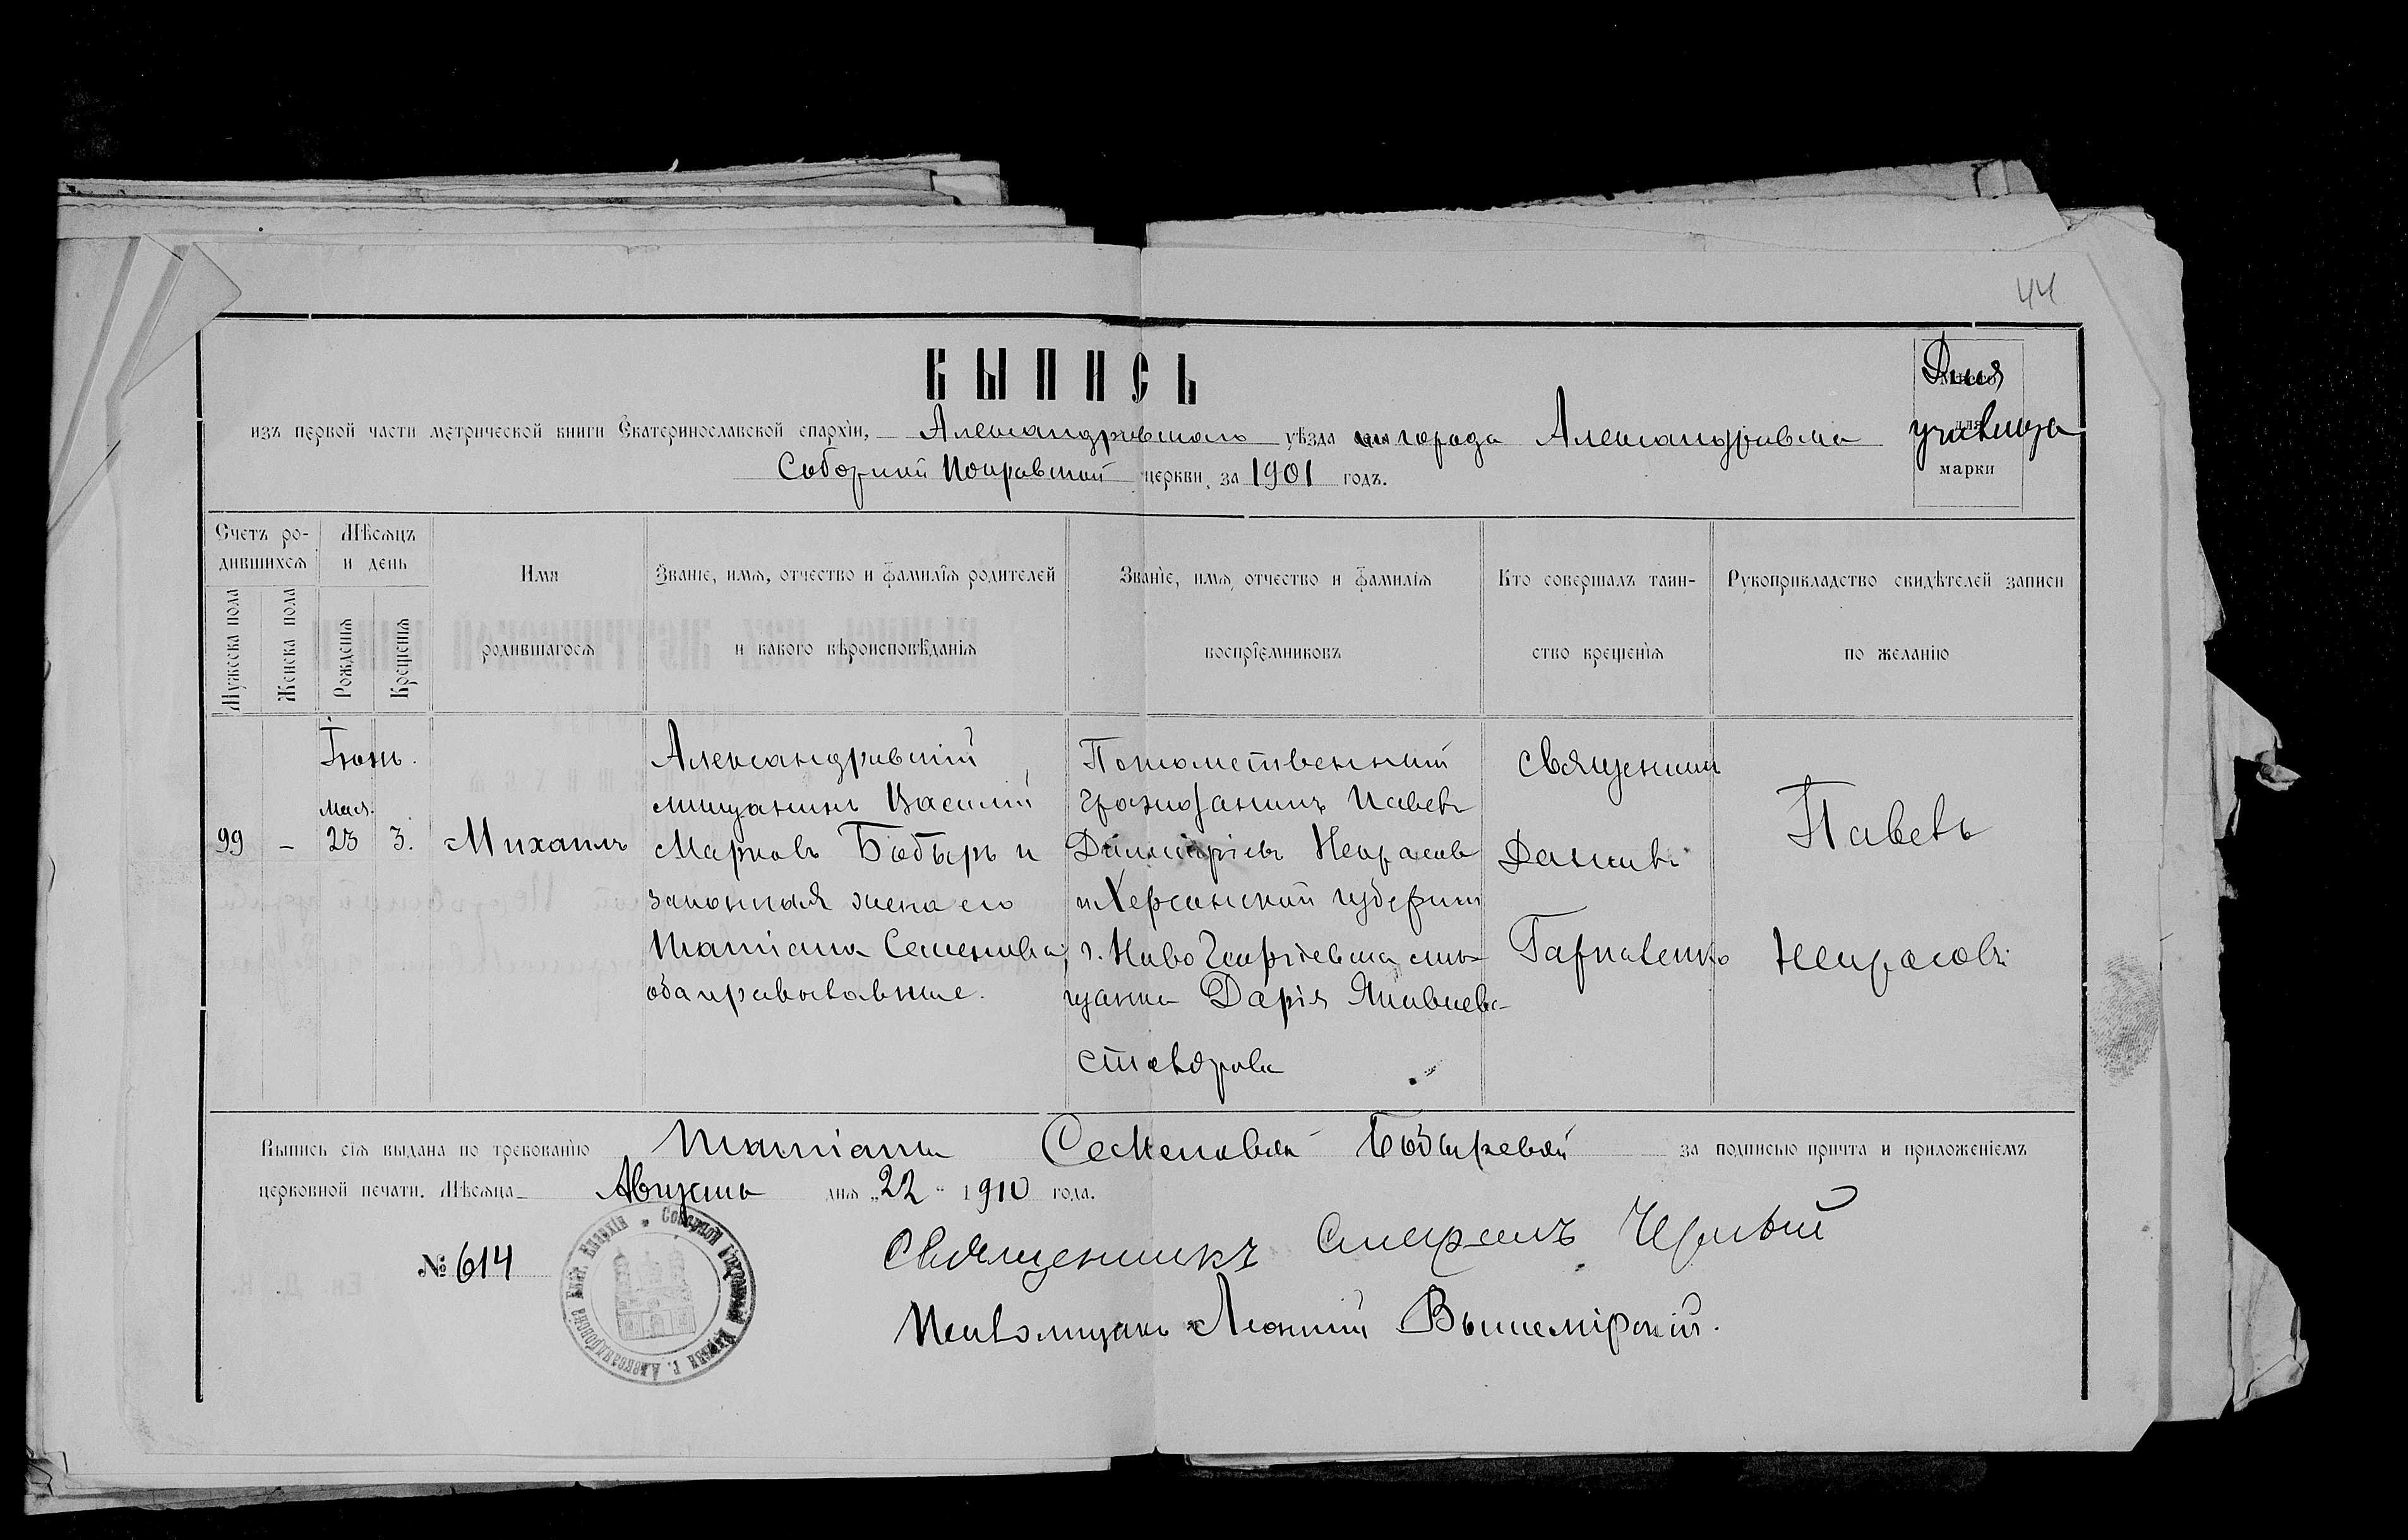 44
ВЫПИСЬ
Для
училища
Место
для
марки
изъ первой части метрической книги Екатеринославской епархіи, Александровскаго уѣзда города Александровска
Соборной Покровской церкви, за 1901 годъ.
Счетъ ро-
дившихся
Мѣсяцъ
и день
Мужеска пола
Женска пола
Рожденія
Крещенія
Имя
родившагося
Званіе, имя, отчество и фамилія родителей
и какого вѣроисповѣданія
Званіе, имя, отчество и фамилія
воспріемниковъ
Кто совершалъ таин-
ство крещенія
Рукоприкладство свидѣтелей записи
по желанію
99
-
Іюнь.
Мая.
23
3.
Михаилъ
Александровскій
мѣщанинъ Василій
Марковъ Бобырь и
законная жена его
Татіана Семенова,
оба православные.
Потомственный
гражданинъ Павелъ
Димитріевъ Некрасовъ
и Херсонской губерніи
г. Ново Георгіевска мѣ-
щанка Дарія Яковлева
Ставрова
Священникъ
Даніилъ
Гарнавенко
Павелъ
Некрасовъ
Выпись сія выдана по требованію Татіаны Семеновой Бобыревой за подписью причта и приложеніемъ
церковной печати. Мѣсяца Августа дня „22" 1910 года.
№ 614
Соборной Покровской Церкви г. Александровска Екат. Епархіи
Священникъ Черный
Псаломщикъ Леонтій Вышемірскій.